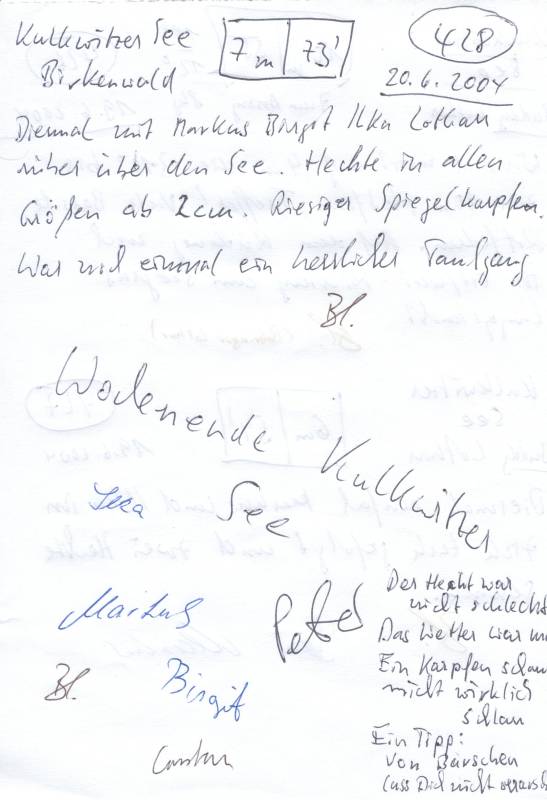 Kulkwitzer See
7m 73'
428
Birkenwald
20.6.2004
Diesmal mit Markus Birgit Ilka Lothar
rüber über den See. Hechte in allen
Größen ab 2cm. Riesiger Spiegelkarpfen.
War noch einmal ein herrlicher Tauchgang
Bl.
Wochenende Kulkwitzer
See
Ilka
Markus
Peter
Bl.
Birgit
Carsten
Der Hecht war
nicht schlecht
Das Wetter war
Ein Karpfen
nicht wirklich
schlau
Ein Tipp:
von Barschen
lass Dich nicht